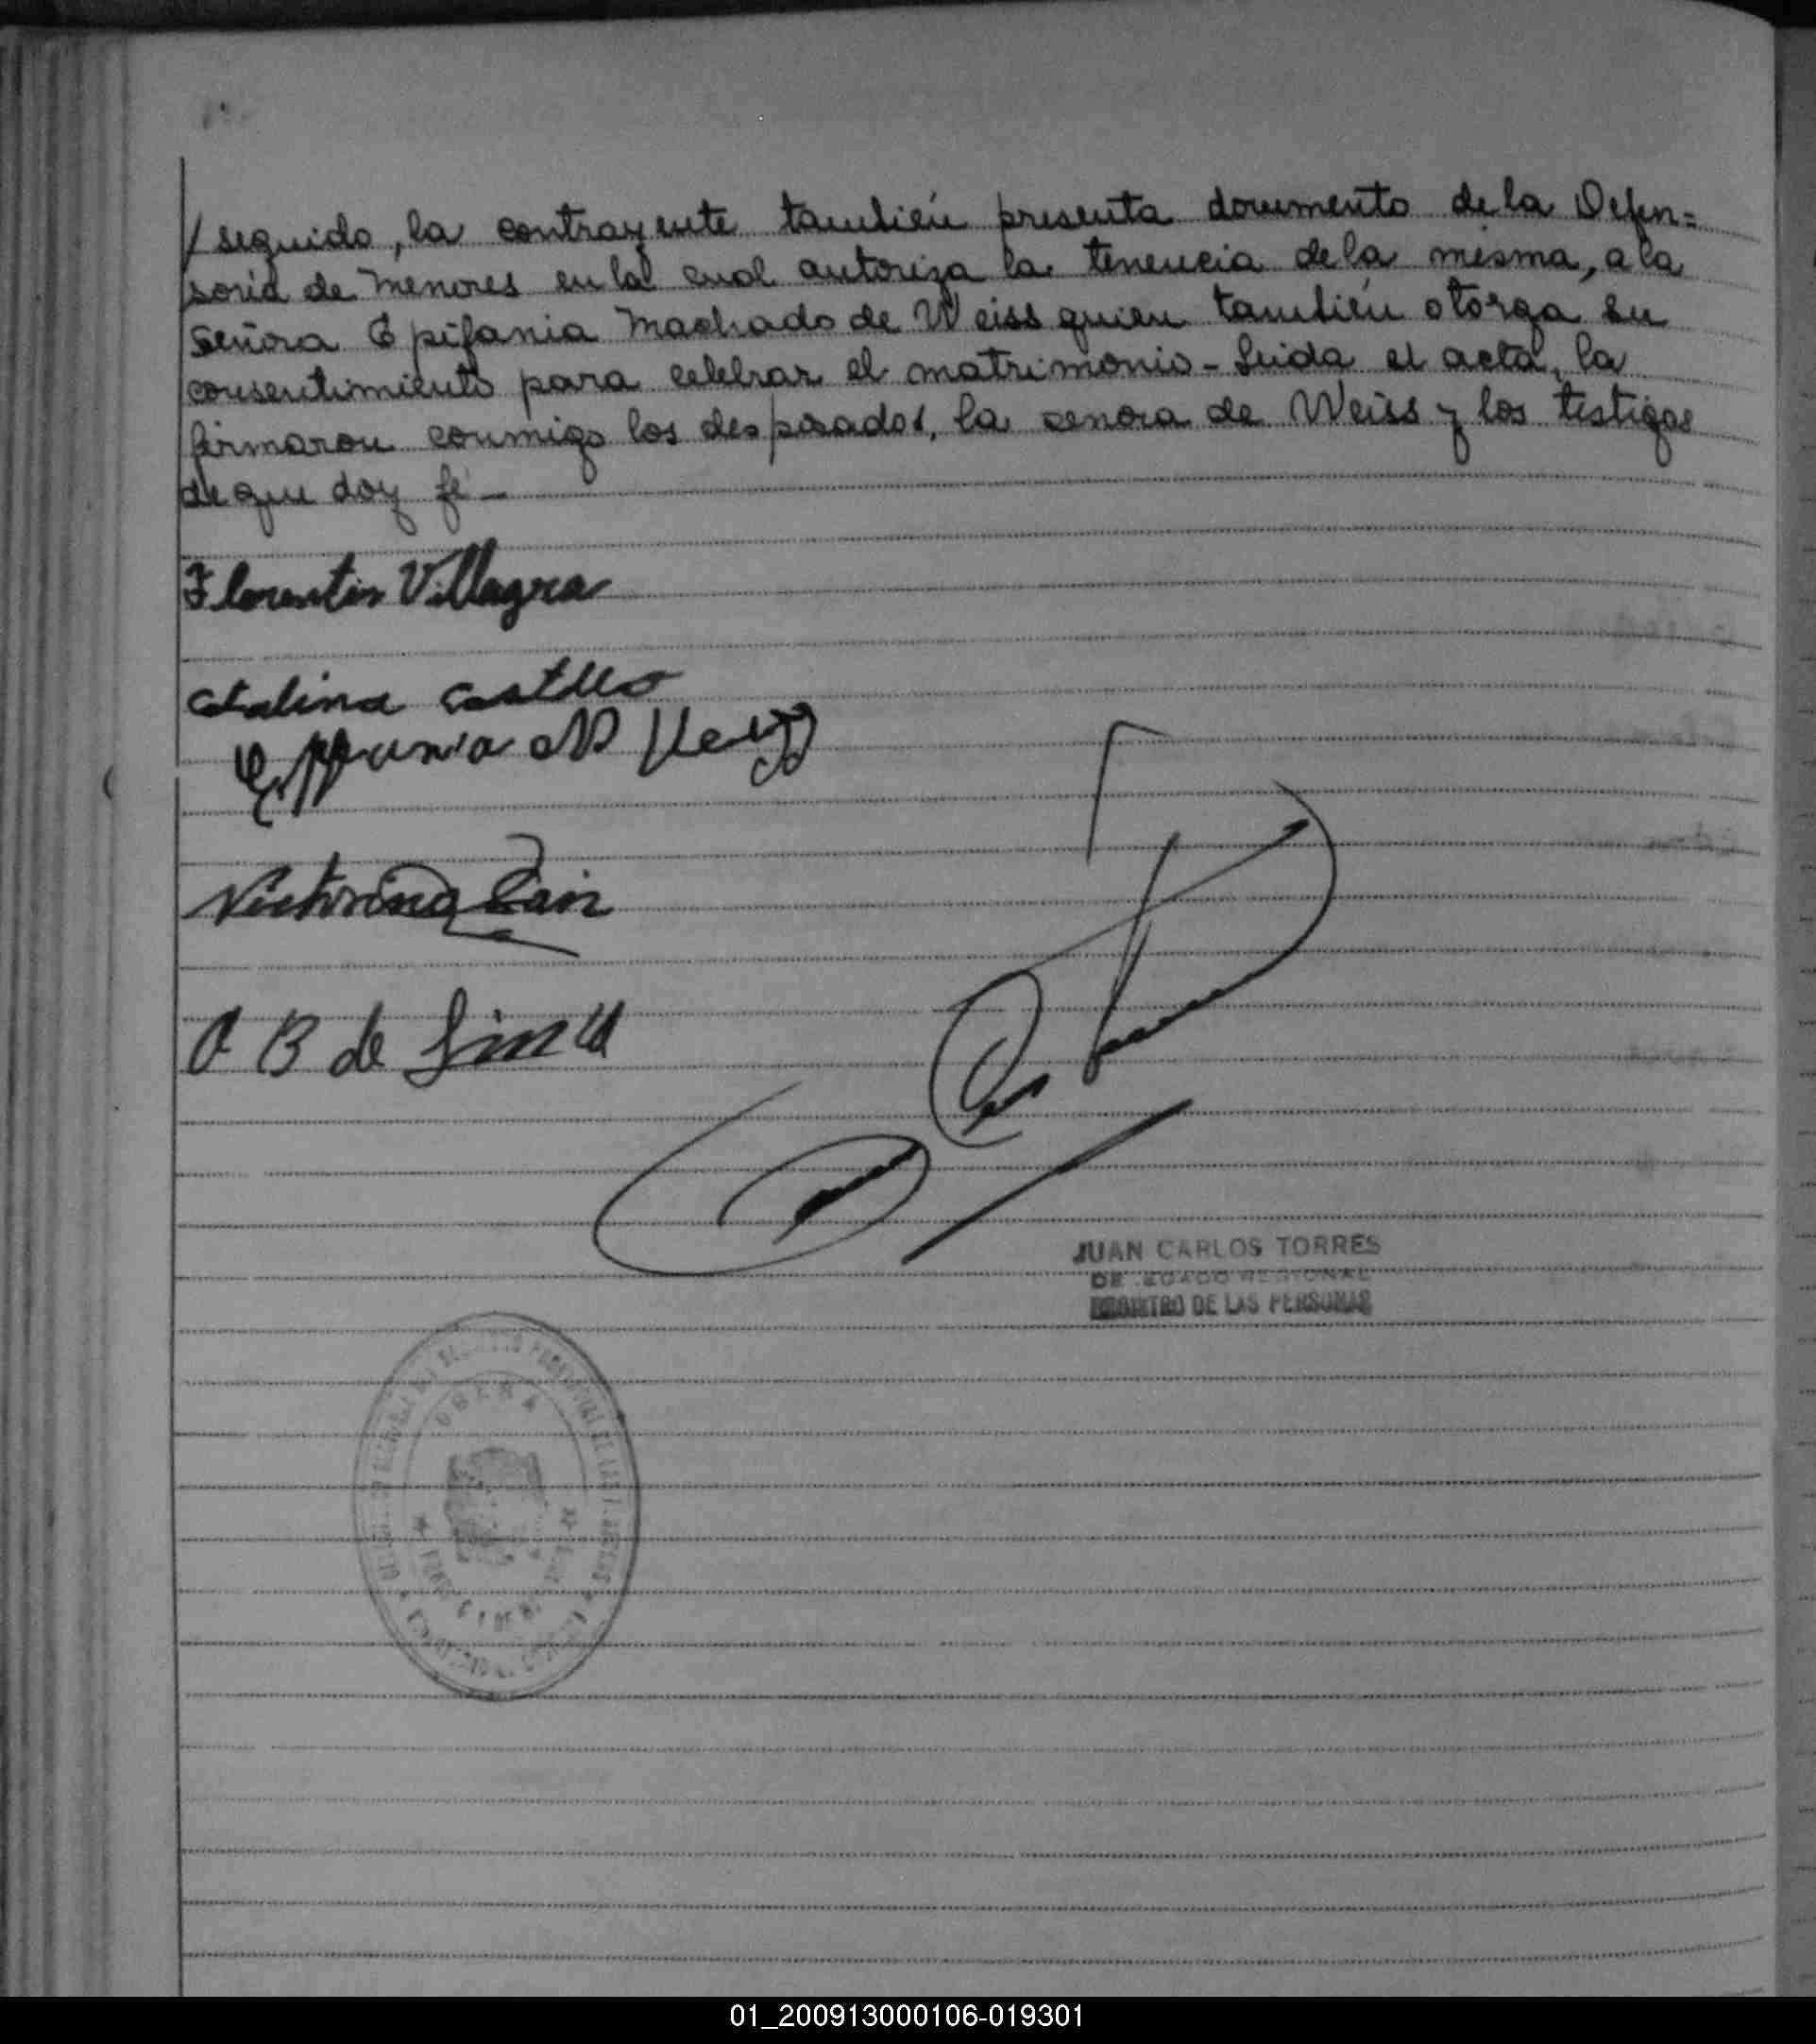 /seguido, la contrayente también presenta documento de la Defen=
soria de Menores en la cual autoriza la tenencia de la misma, a la
Señora Epifania Machado de Weiss quien también otorga su
consentimiento para celebrar el matrimonio - Leida el acta, la
firmaron conmigo los desposados, la senora de Weiss y los testigos
de que doy fé -
Florentin Villagra
Catalina Castillo
Victorino
O B de Lima
JUAN CARLOS TORRES
REGIONAL
REGISTRO DE LAS PERSONAS
OBERA
01_200913000106-019301